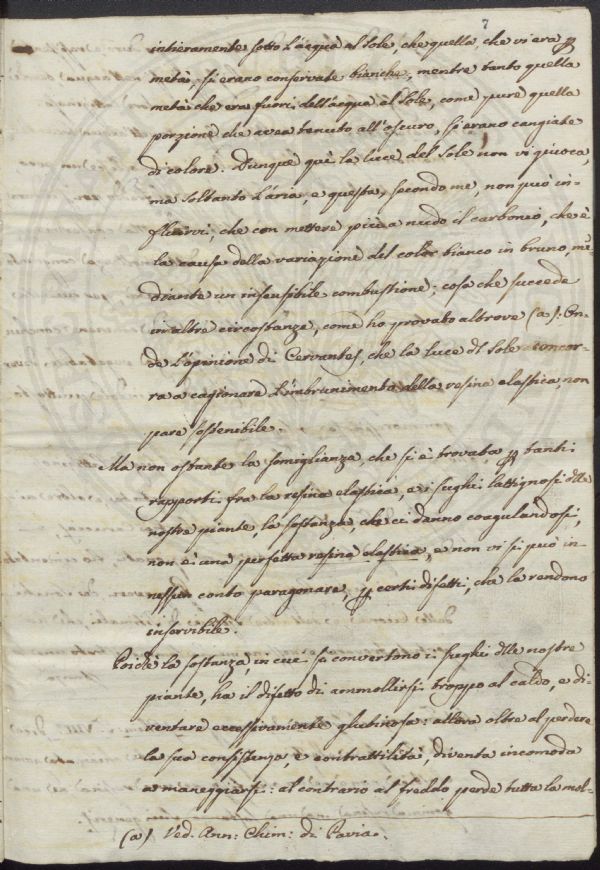 7
intieramente sotto l'acqua al Sole, che quella, che vi era p
metà, si erano conservate bianche, mentre tanto quella
metà che era fuori dell'acqua al Sole, come pure quella
porzione che avea tenuto all'oscuro, si erano cangiate
di colore. Dunque quì la luce del Sole non vi giuoca,
ma soltanto l'aria, e questa, secondo me, non può in-
fluirvi, che con mettere più a nudo il carbonio, che è
la causa della variazione del color bianco in bruno, me-
diante un insensibile combustione; cosa che succede
in altre circostanze, come ho provato altrove (a). On-
de l'opinione di Cervantes, che la luce dl Sole concor-
ra a cagionare l'imbrunimento della resina elastica, non
pare sostenibile.
Ma non ostante la somiglianza, che si è trovata p tanti
rapporti fra la resina elastica, e i sughi lattiginosi dlle
nostre piante, la sostanza, che ci danno coagulandosi,
non è una perfetta resina elastica, e non vi si può in
nessun conto paragonare, p certi difetti, che la rendono
inservibile.
Poichè la sostanza, in cui si convertono i sughi dlle nostre
piante, ha il difetto di ammollirsi troppo al caldo, e di-
ventare eccessivamente glutinosa: allora oltre al perdere
la sua consistenza, e contrattilità, diventa incomoda
a maneggiarsi: al contrario al freddo perde tutta la mol-
(a) Ved. Ann: Chim: di Pavia.